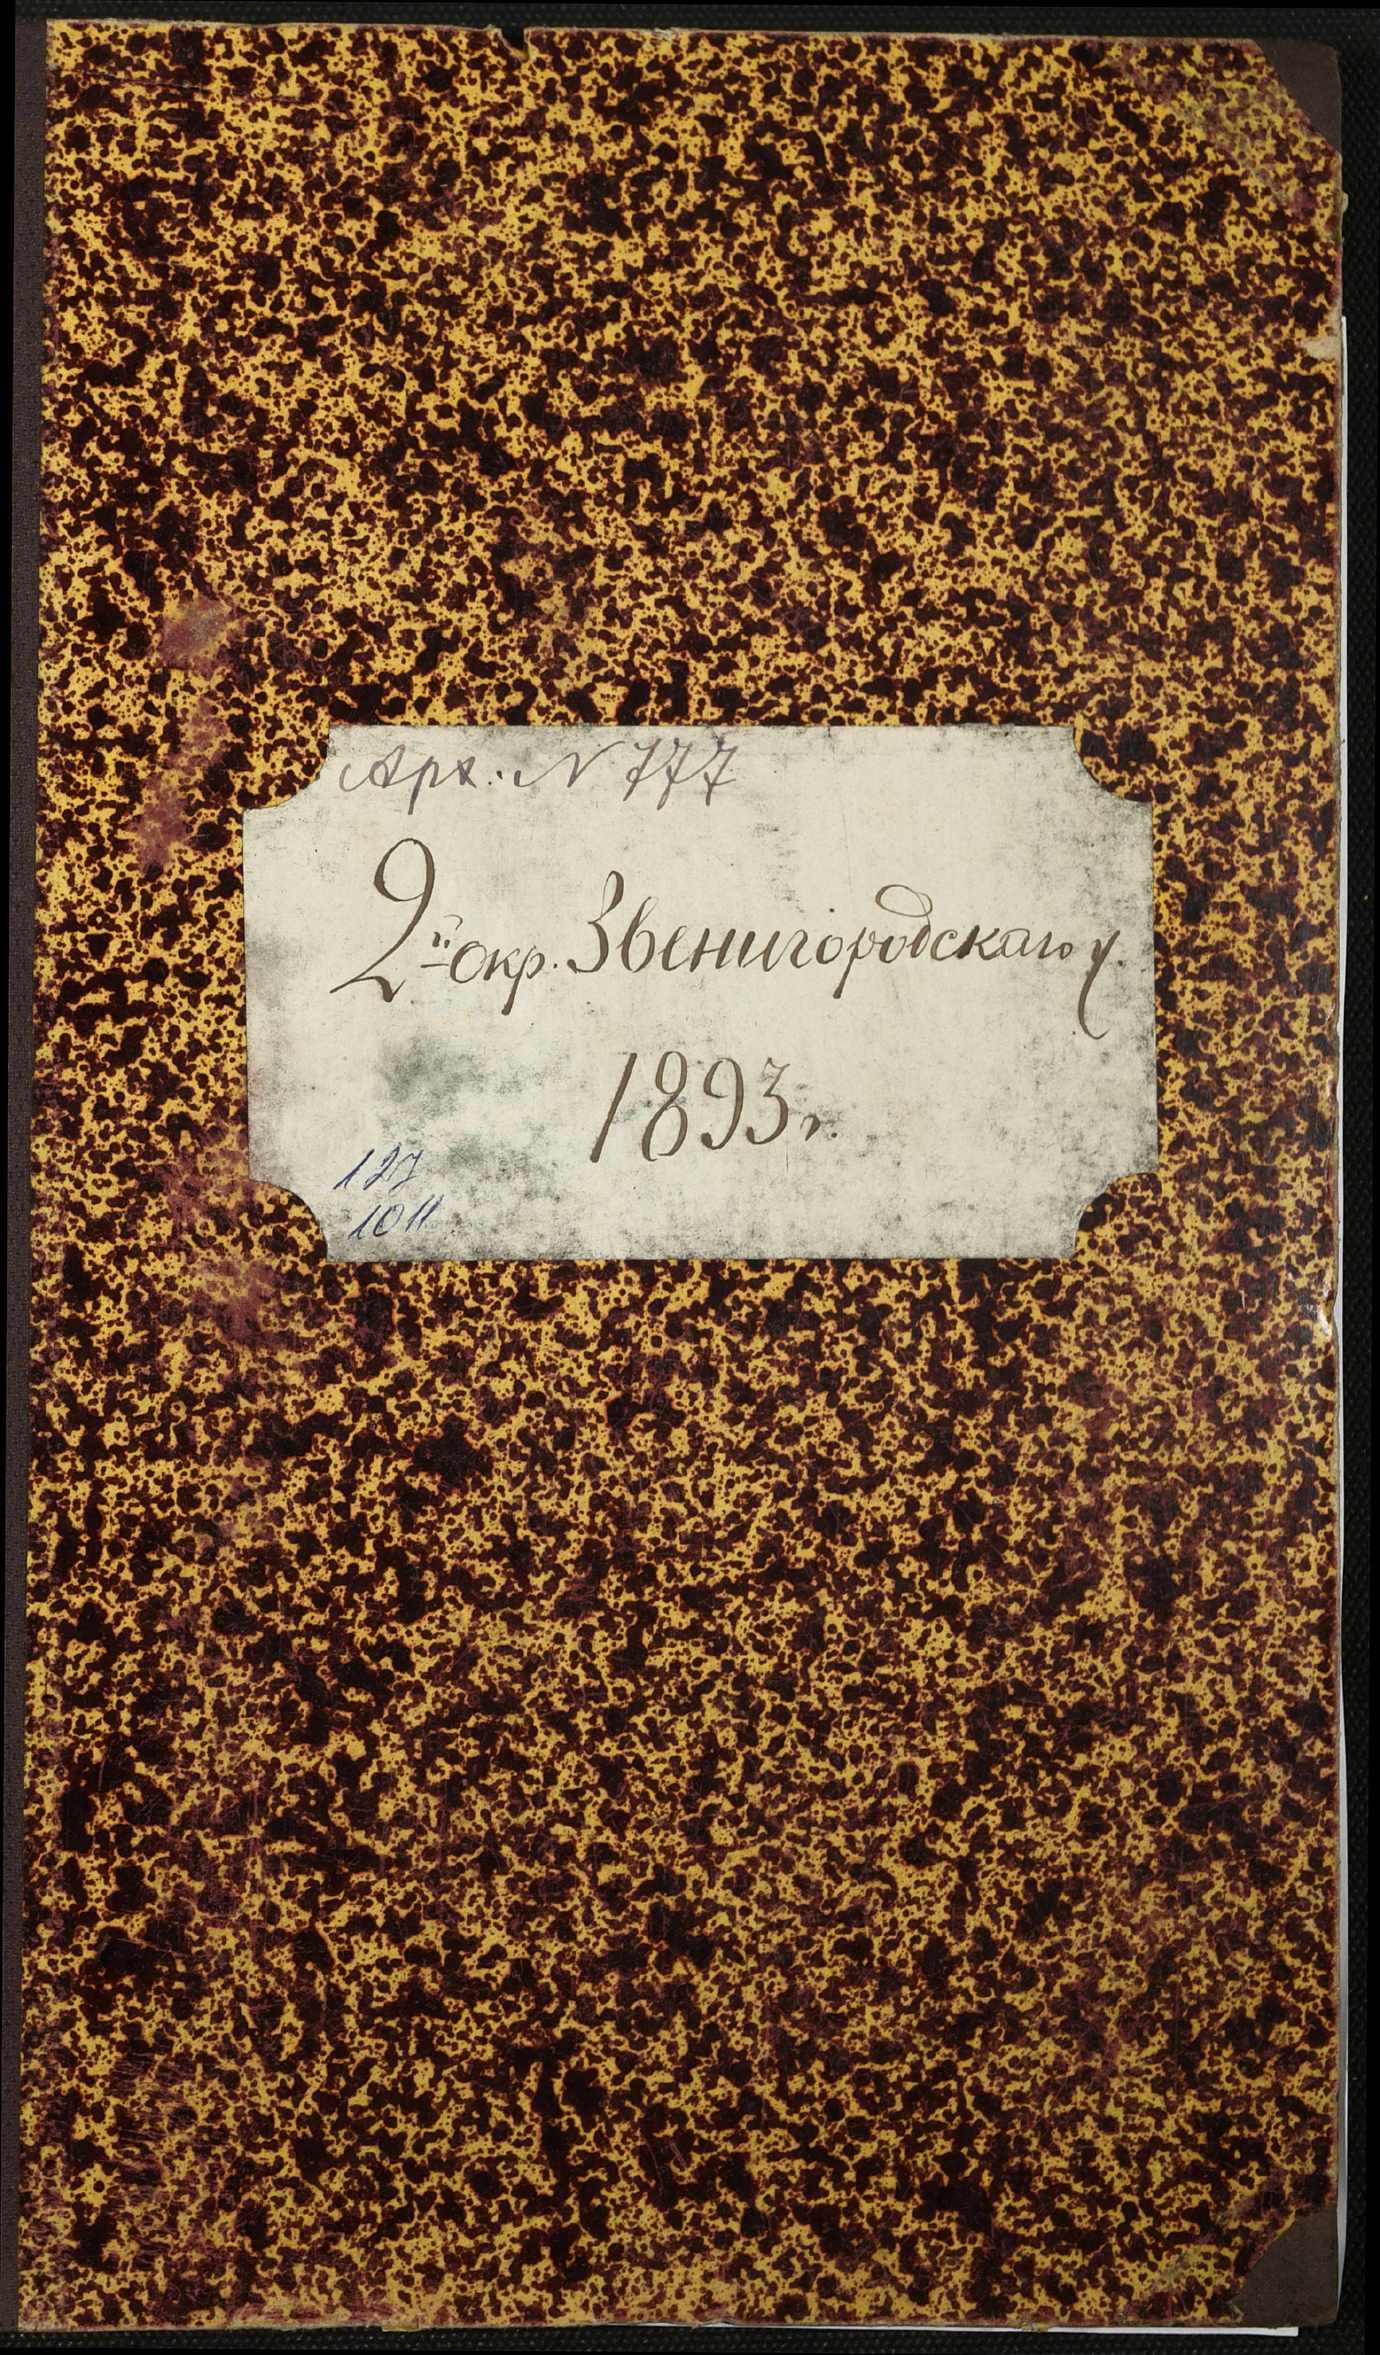 Арх. N 777
2й окр. Звенигородскаго у.
1893 г.
127
1011